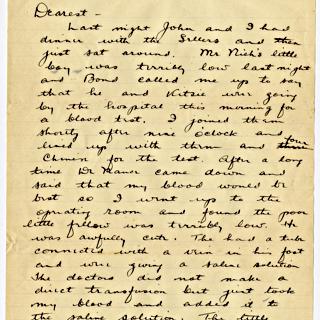 Dearest -
Last night John and I had
dinner with the Sellers and then
just sat around. Mr Rich's little
boy was terribly low last night
and Bond called me up to say
that he and Kitsie were going
by the hospital this morning for
a blood test. I joined them
shortly after nine o'clock and
lined up with them and four
Chinese for the test. After a long
time Dr came down and
said that my blood would be
best so I went up to the
oprating room and found the poor
little fellow was terribly low. He
was awfully cute. The had a tube
connected with a vein in his foot
and were giving a saline solution
The doctors did not make a
direct transfusion but just took
my blood and added it to
the saline solution. The little